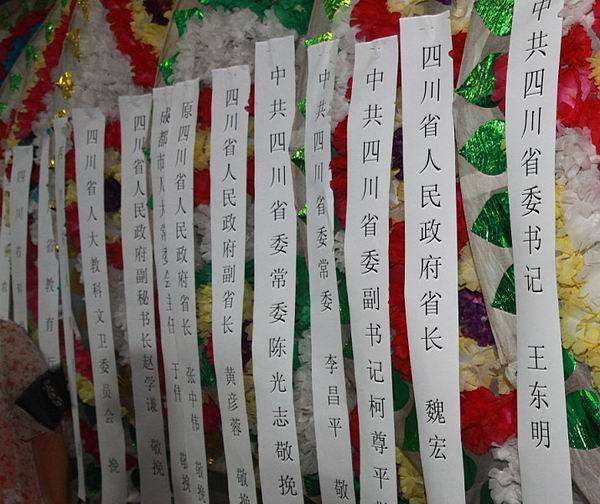 中共四川省委书记 王东明
四川省人民政府省长 魏宏
中共四川省委副书记柯尊平
中共四川省委常委 李昌平 敬
中共四川省委常委陈光志敬挽
四川省人民政府副省长 黄彦蓉 敬
原四川省人民政府省长 张中伟 敬
成都市人大常委会主任 于伟 敬挽
四川省人民政府副秘书长赵学谦 敬挽
四川省人大教科文卫委员会 挽
省教育厅
四川省